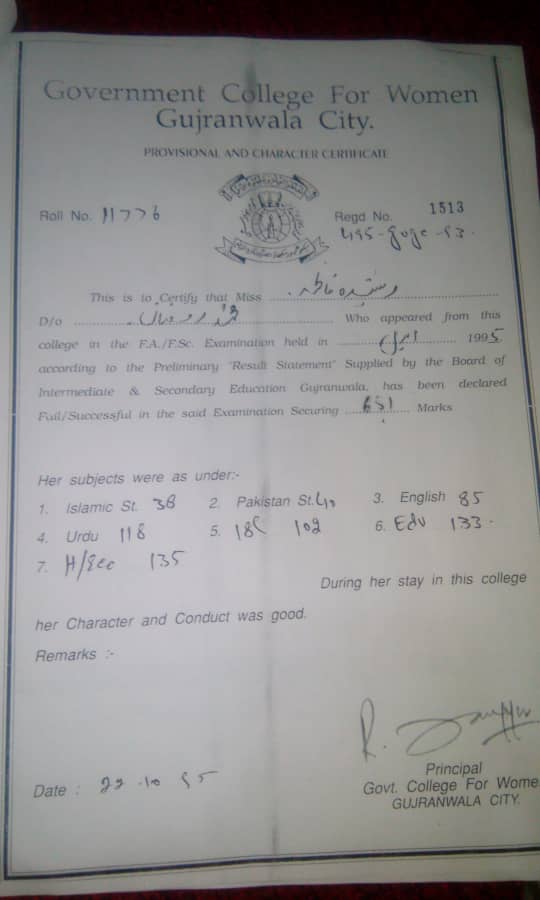 Government College For Women
Gujranwala City.
PROVISIONAL AND CHARACTER CERTIFICATE
Roll No. 11776
Regd No. 1513
495-gugc-93.
This is to Certify that Miss فاطمہ
D/o Who appeared from this
college in the F.A./F.Sc. Examination held in اپریل 1995
according to the Preliminary "Result Statement" Supplied by the Board of
Intermediate & Secondary Education Gujranwala, has been declared
Full/Successful in the said Examination Securing 651 Marks
Her subjects were as under:-
1. Islamic St. 38 2. Pakistan St. 40 3. English 85
4. Urdu 118 5. 102 6. Edu 133.
7. H/Eco 135
During her stay in this college
her Character and Conduct was good.
Remarks :-
Date : 22.10 95
Principal
Govt. College For Wome
GUJRANWALA CITY.